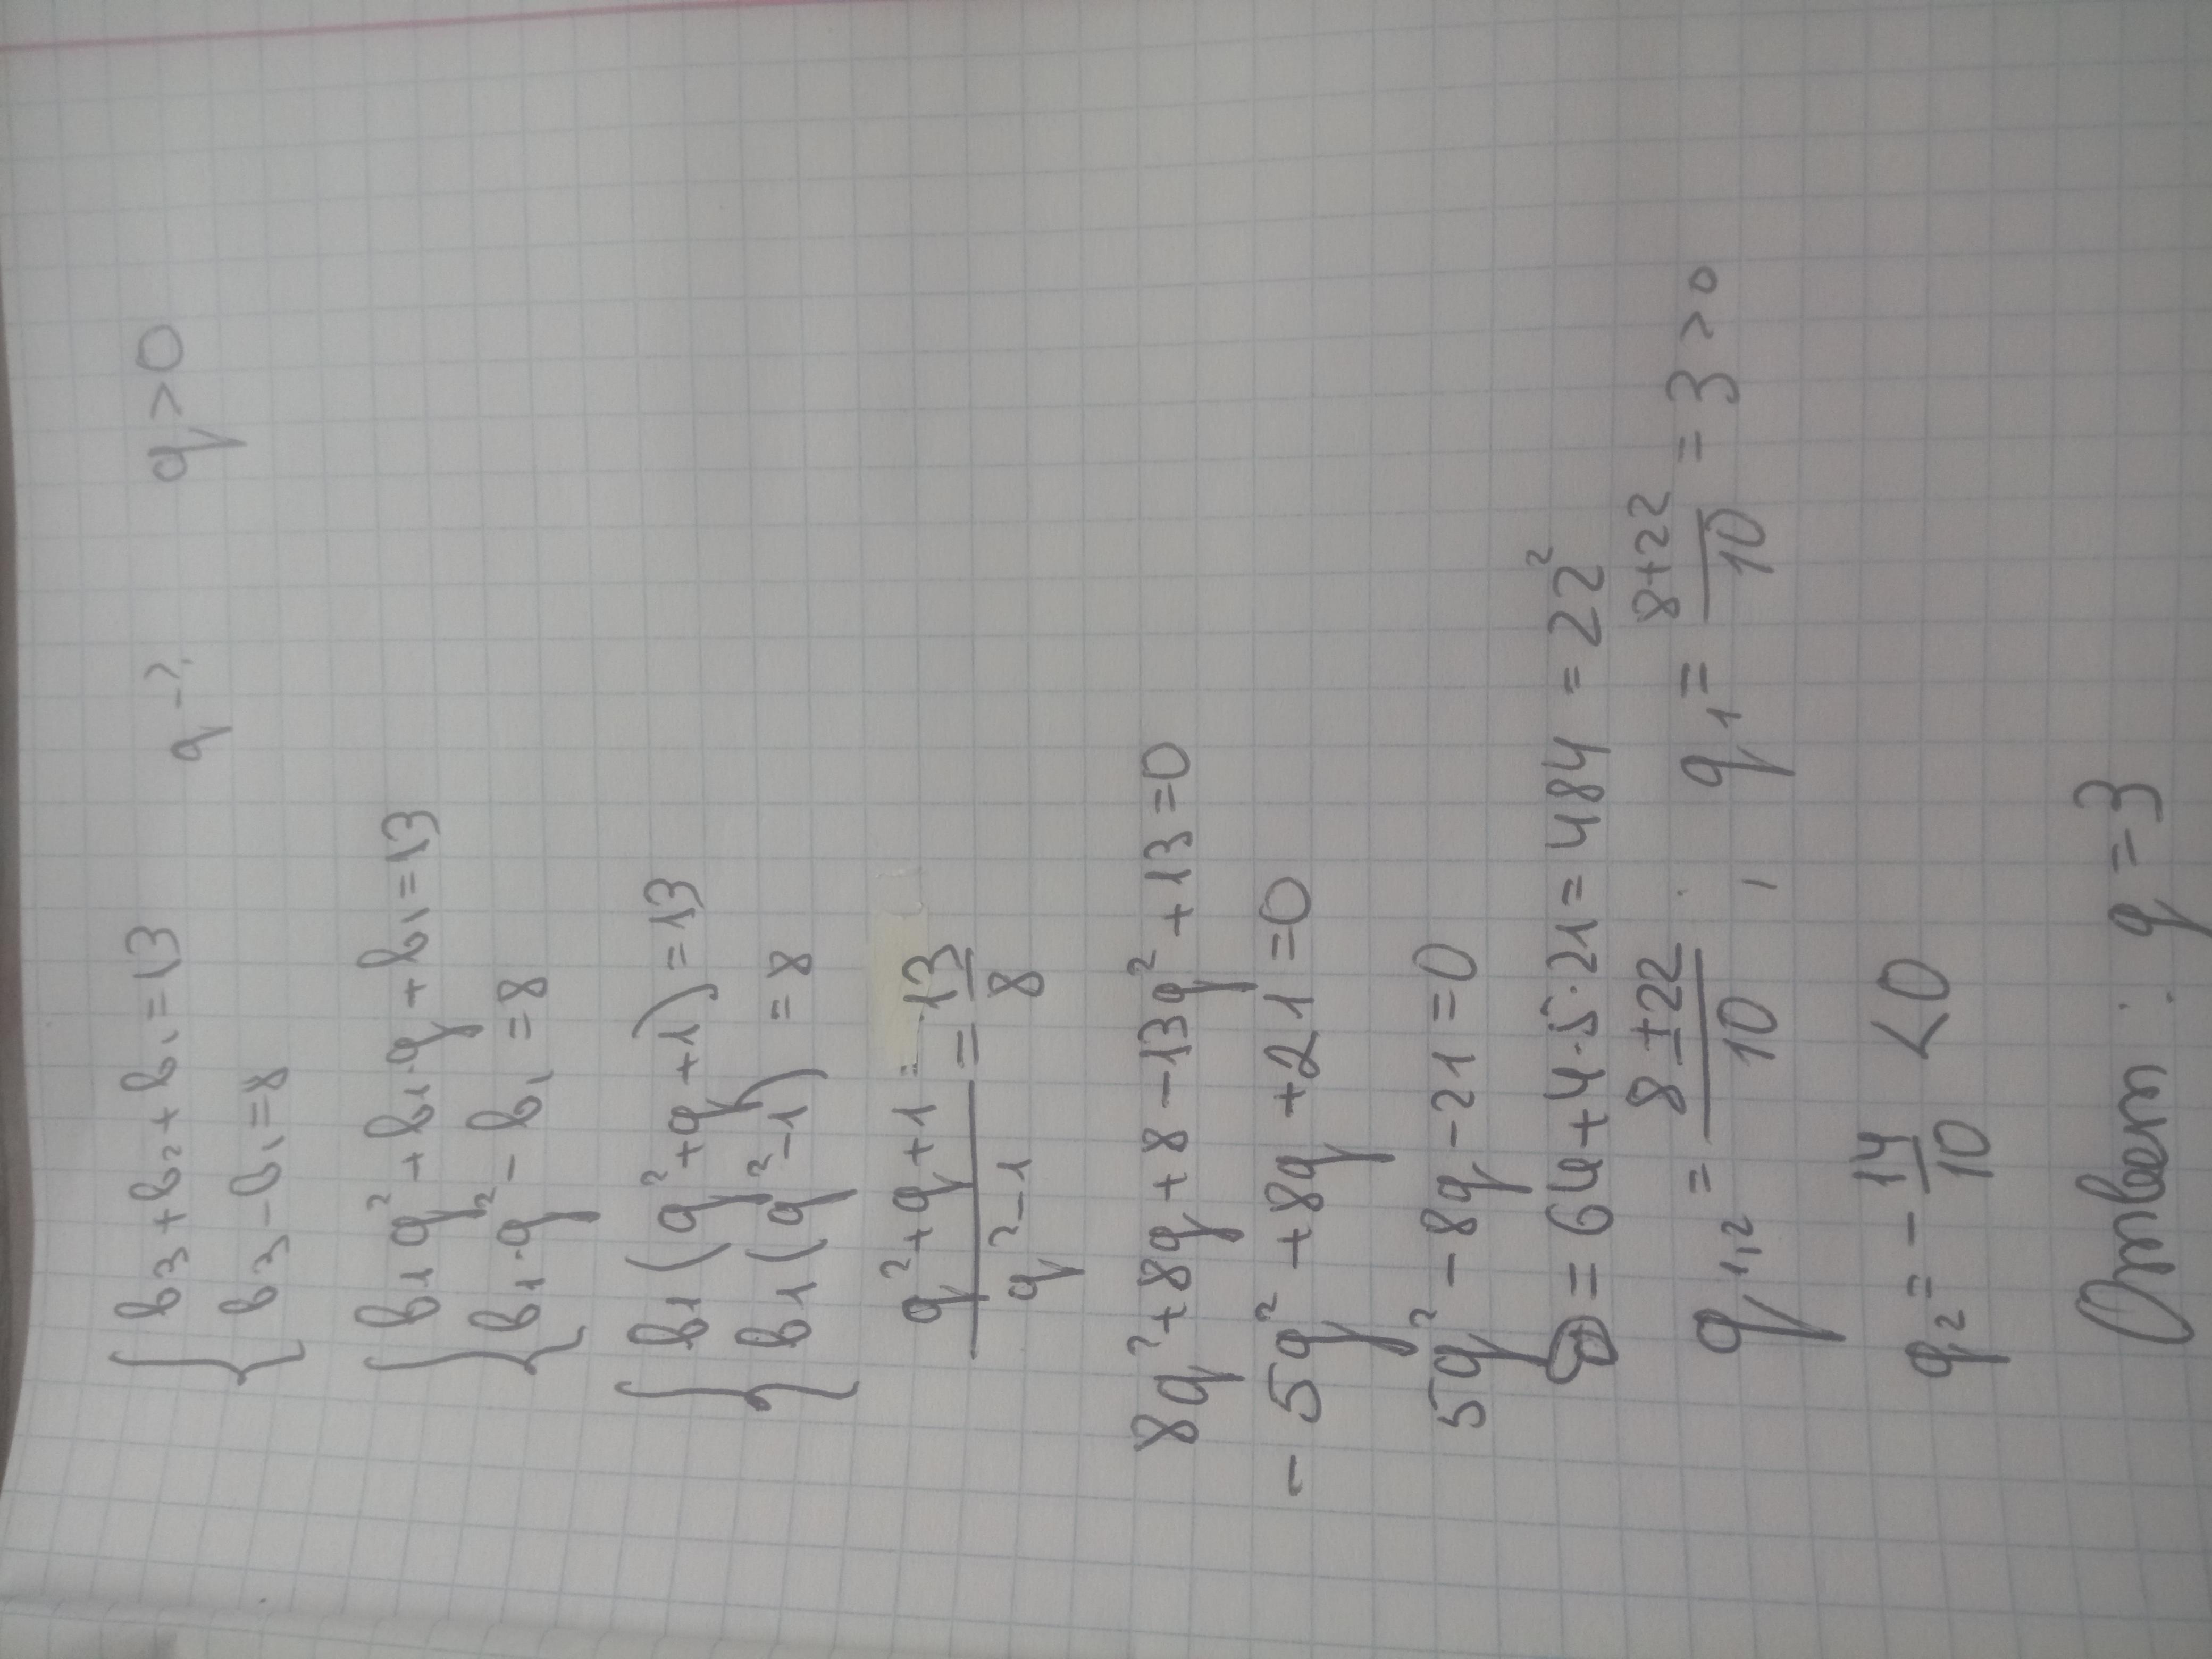 { b₃ + b₂ + b₁ = 13    q - ?    q > 0
b₃ - b₁ = 8
{ b₁ q² + b₁·q + b₁ = 13
b₁·q² - b₁ = 8
{ b₁ (q² + q + 1) = 13
b₁ (q² - 1) = 8
(q² + q + 1)/(q² - 1) = 13/8
8q² + 8q + 8 - 13q² + 13 = 0
- 5q² + 8q + 21 = 0
5q² - 8q - 21 = 0
D = 64 + 4·5·21 = 484 = 22²
q₁,₂ = (8 ± 22)/10 ; q₁ = (8+22)/10 = 3 > 0
q₂ = - 14/10 < 0
Ответ : q = 3